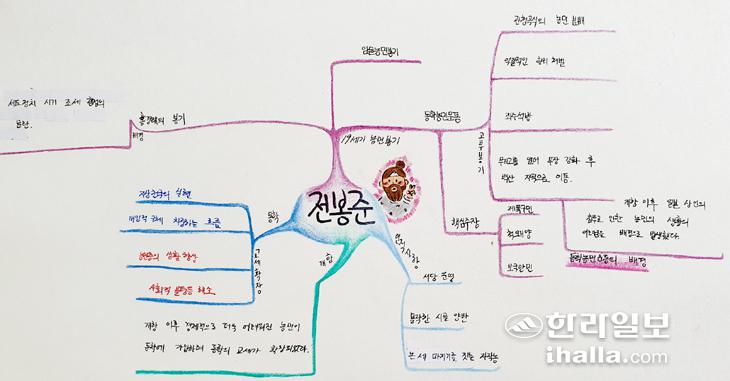 관청공속의 농민 침해
임술농민봉기
악질적인 향리 처벌
세도정치 시기 조세 행정의
문란.
홍경래의 봉기
배경
동학농민운동
19세기 농민봉기
고부봉기
무기고를 열어 무장 강화 후
백산 지역으로 이동.
전봉준
동학
교세확장
개항
인적사항
핵심주장
제폭구민
척왜양
보국안민
개항 이후 일본 상인의
침투로 인한 농민의 생활의
배경으로 발생했다.
동학농민운동의 배경
농민의 생활 향상
사회적 불평등 해소
서당 훈장
몰락한 시골 양반
논 세 마지기를 짓는 자작농
개항 이후 경제적으로 더욱 어려워진 농민이
동학에 가입하여 동학의 교세가 확장되었다.
한라일보
ihalla.com